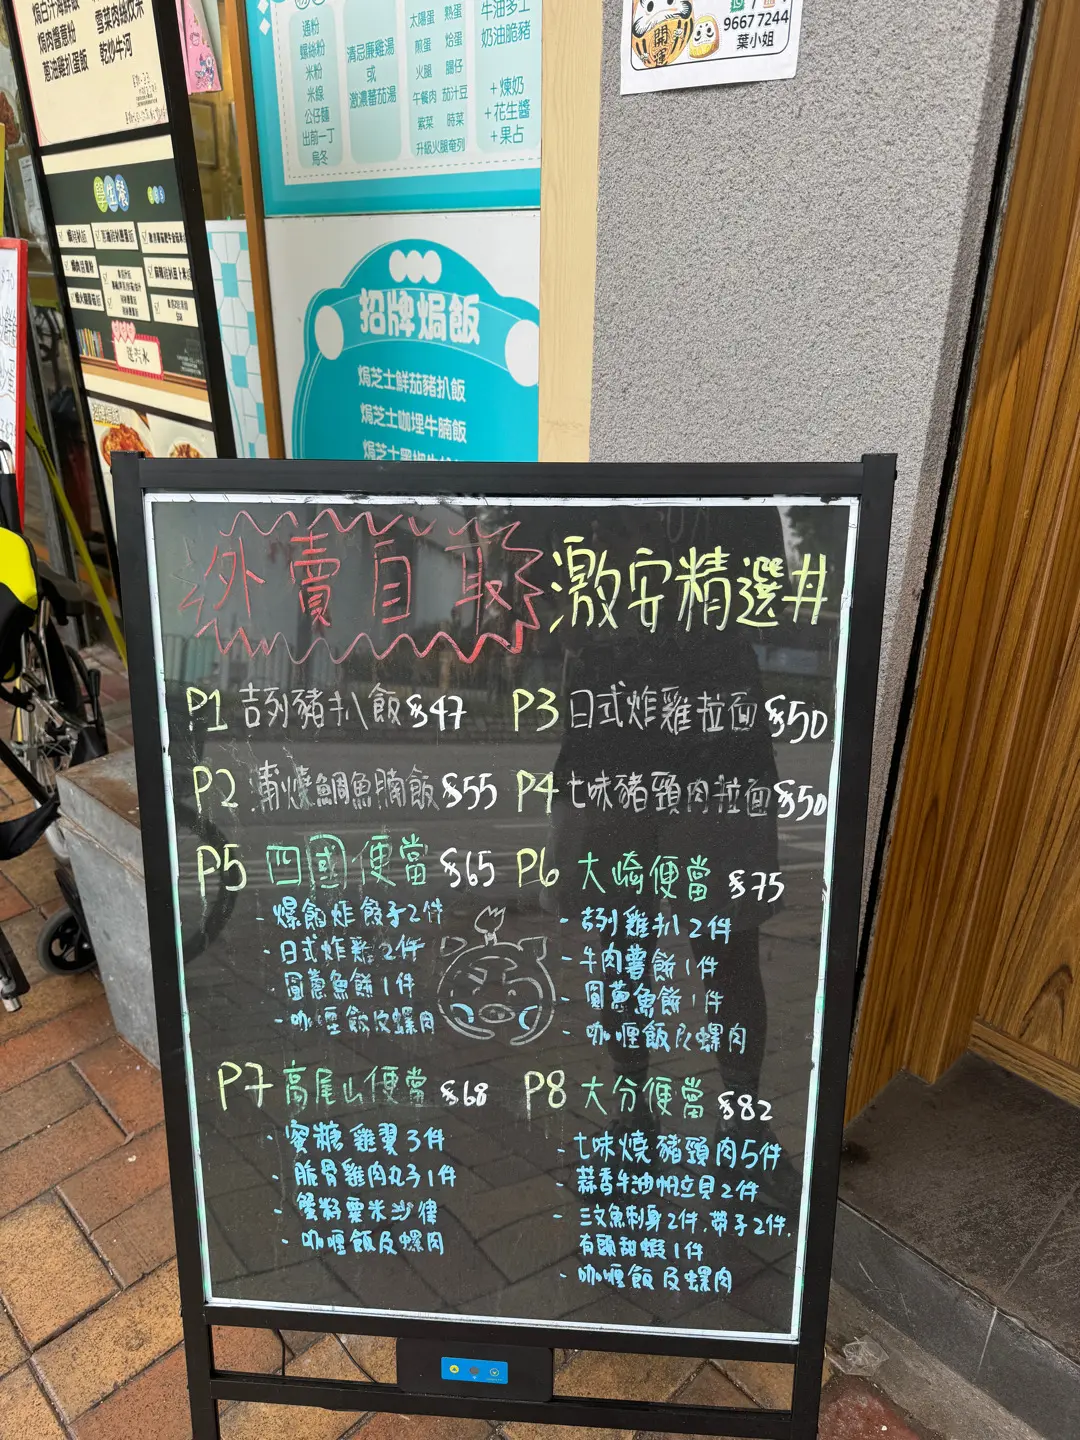 焗醬意粉
蔥油雞扒蛋飯
雪菜肉絲炆米
乾炒牛河
學生餐
送汽水
通粉
螺絲粉
米粉
米線
公仔麵
出前一丁
烏冬
清忌廉雞湯
或
激濃蕃茄湯
太陽蛋 熟蛋
煎蛋 炒蛋
火腿 腸仔
午餐肉 茄汁豆
紫菜 時菜
升級火腿奄列
牛油多士
奶油脆豬
+煉奶
+花生醬
+果占
開運
96677244
葉小姐
招牌焗飯
焗芝士鮮茄豬扒飯
焗芝士咖喱牛腩飯
外賣自取 激安精選#
P1 吉列豬扒飯 $47
P3 日式炸雞拉面 $50
P2 蒲燒鯛魚腩飯 $55
P4 七味豬頸肉拉面 $50
P5 四國便當 $65
- 爆餡炸餃子2件
- 日式炸雞2件
- 圓蔥魚餅1件
- 咖喱飯及螺肉
P6 大崎便當 $75
- 吉列雞扒2件
- 牛肉薯餅1件
- 圓蔥魚餅1件
- 咖喱飯及螺肉
P7 高尾山便當 $68
- 蜜糖雞翼3件
- 脆骨雞肉丸子1件
- 蟹籽粟米沙律
- 咖喱飯及螺肉
P8 大分便當 $82
- 七味燒豬頸肉5件
- 蒜香牛油帆立貝2件
- 三文魚刺身2件,帶子2件,
有頭甜蝦1件
- 咖喱飯及螺肉